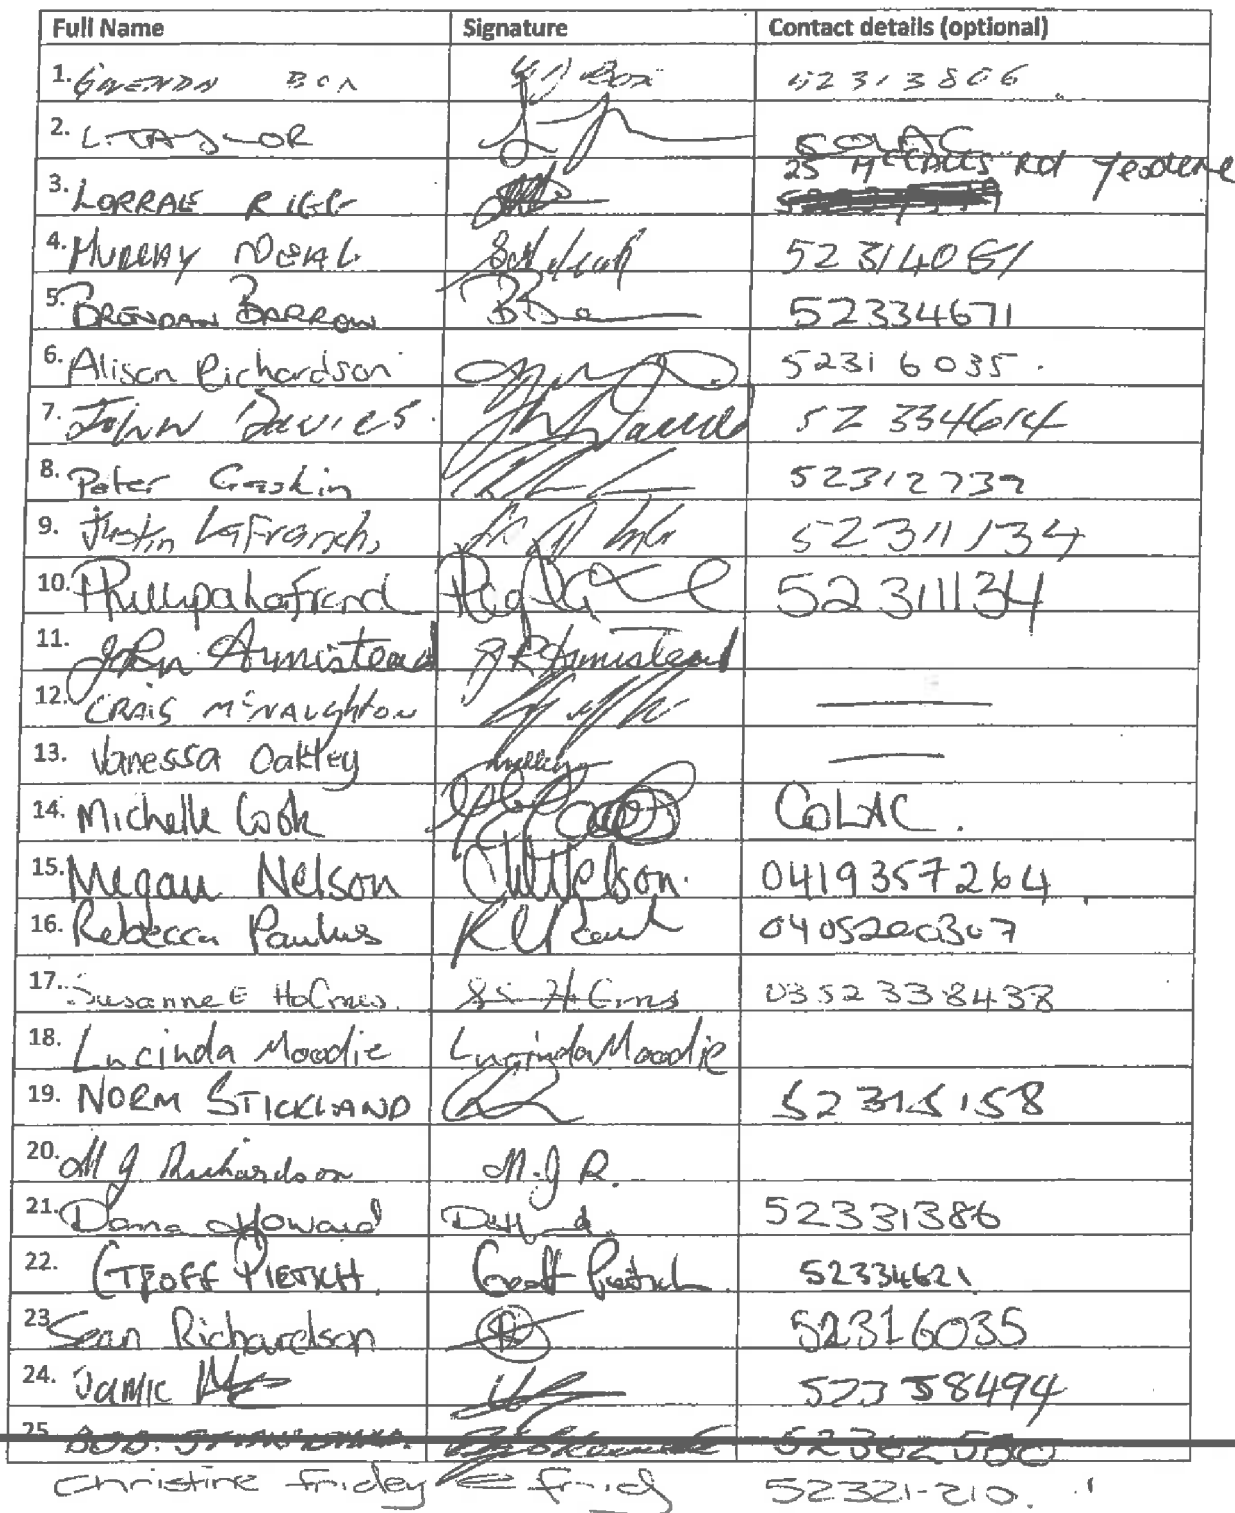 Full Name Signature Contact details (optional)
1. GWENDA BOX Box 52313806
2. L. TAYLOR COLAC
25 McCALLS Rd Yeodene
3. LORRAE RIGG
4. MURRAY NEAL 52314061
5. BRENDAN BARROW 52334671
6. Alison Richardson 52316035.
7. John Davies. 52 334614
8. Peter Gaskin 52312739
9. Justin LaFranchi 52311134
10. Phillipa LaFranch 52311134
11. John Armistead JR Armistead
12. CRAIG McNAUGHTON
13. Vanessa Oakley
14. Michelle Cook COLAC.
15. Megan Nelson Nelson. 0419357264
16. Rebecca Paulus 0405200307
17. Susanne E Holmes. 0352338438
18. Lucinda Moodie Lucinda Moodie
19. NORM STICKLAND 52315158
20. M J Richardson M.J R.
21. Donna Howard 52331386
22. GEOFF PIETSCH Geoff Pietsch 52334621
23 Sean Richardson 52316035
24. Jamie 523 58494
25 BOB. 52362580
Christine friday 52321-210.